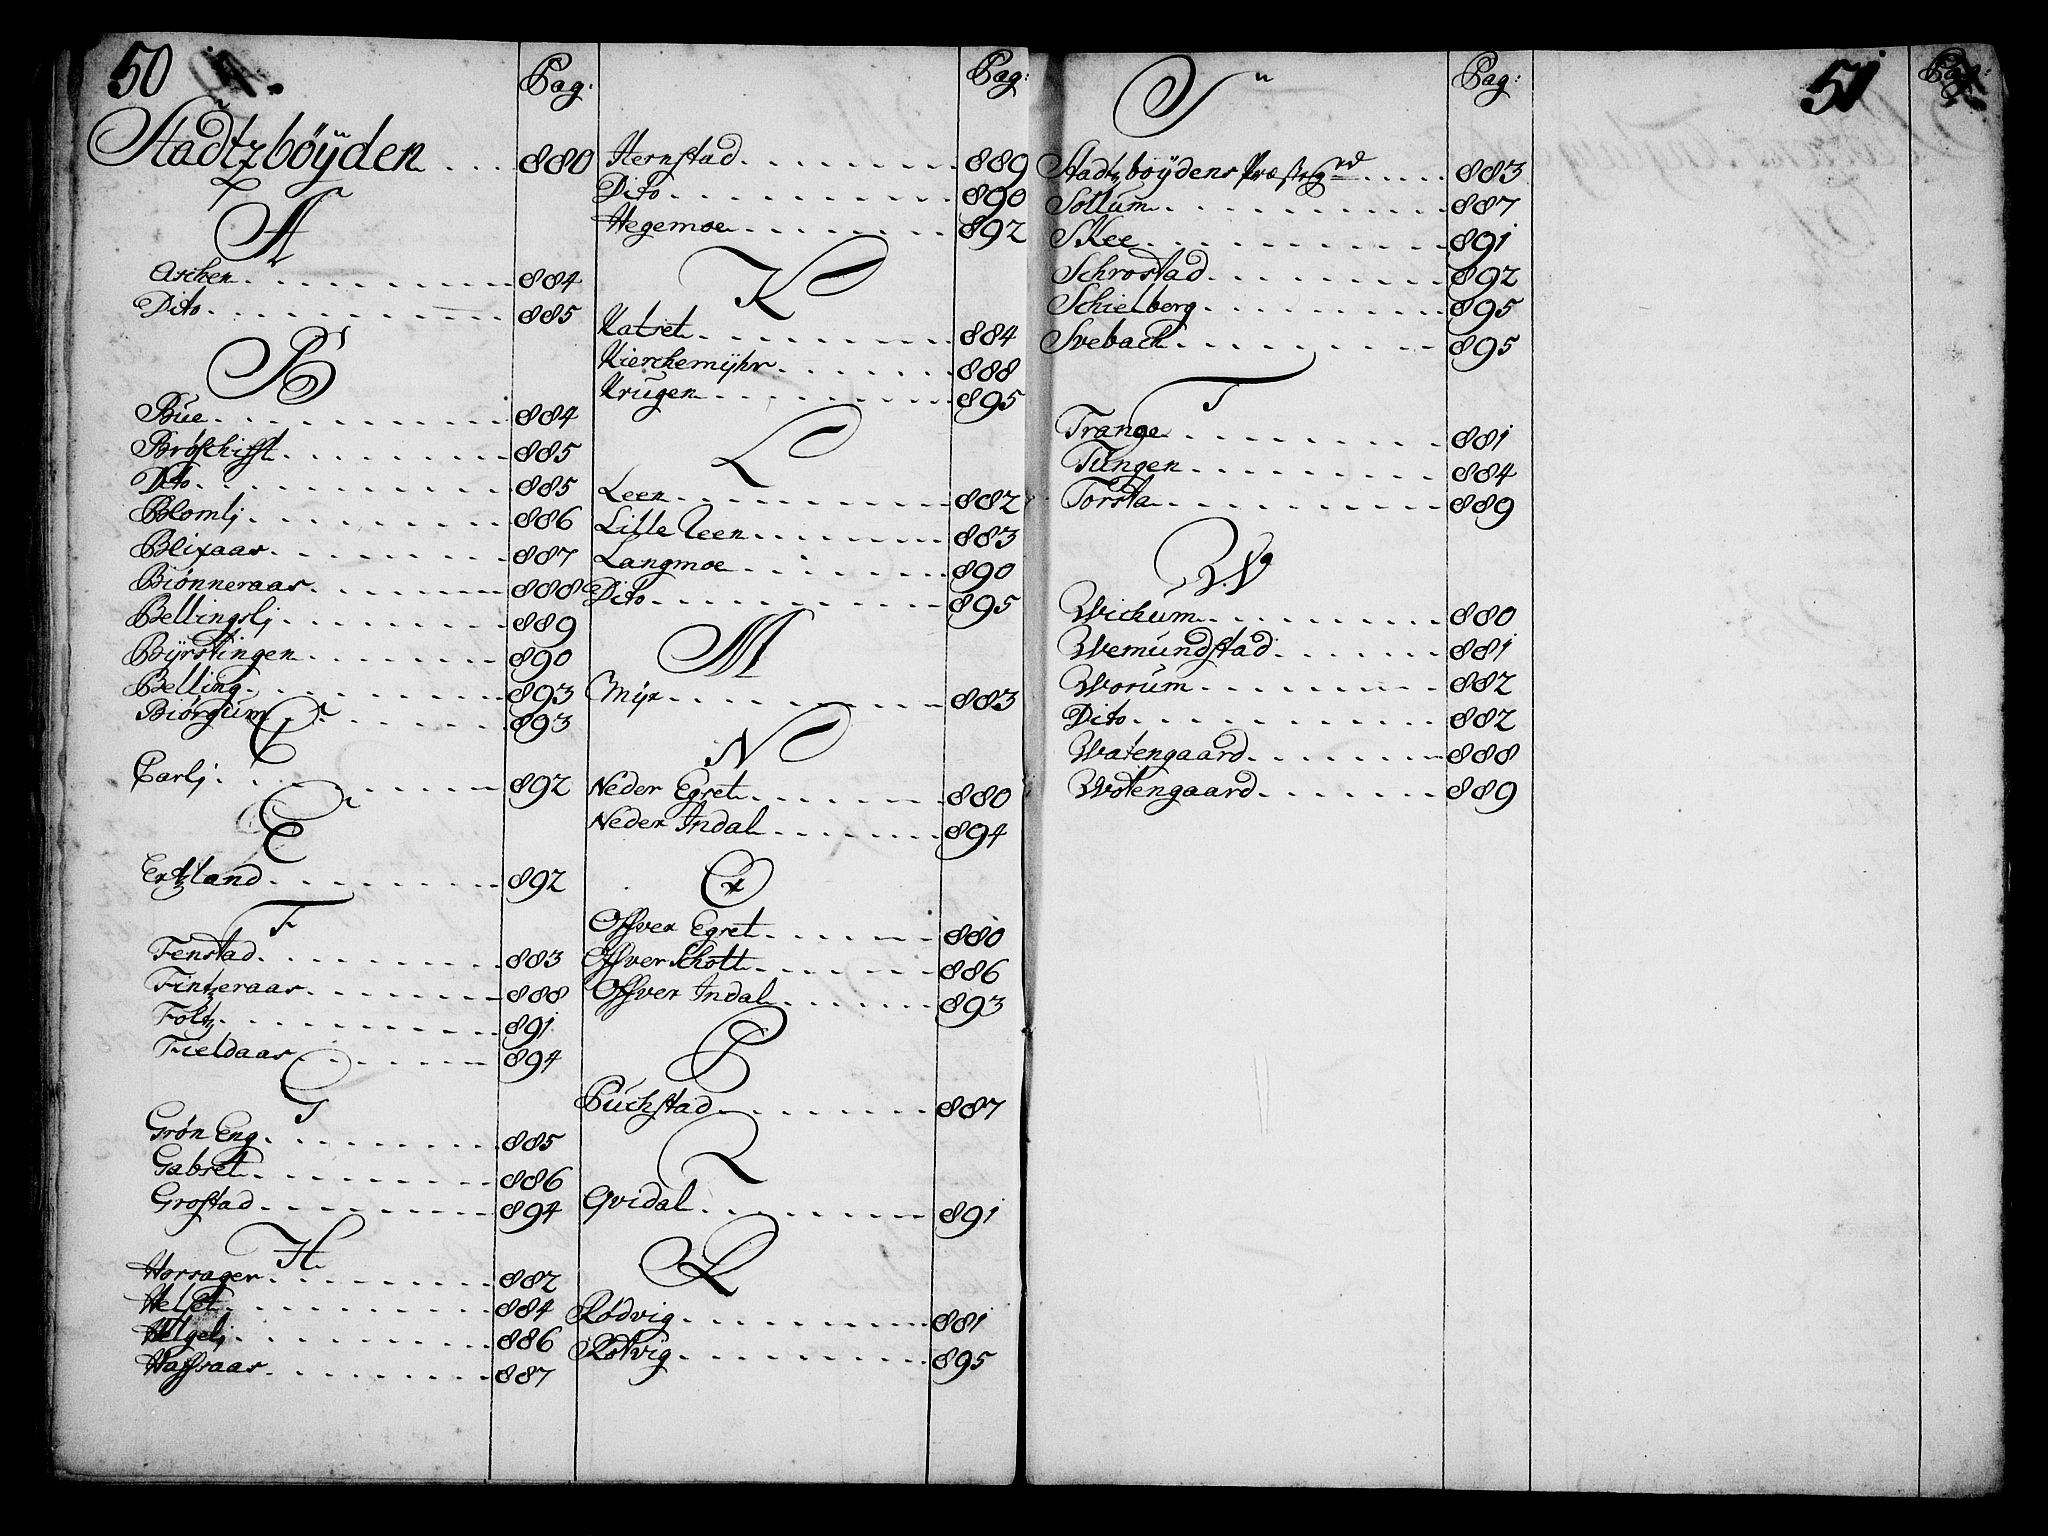 50
Pag:
Stadtzböÿden . . . 880
A
Aschen 884
Dito 885
B
Bue 884
Brøschifft 885
Dito 885
Blomlj 886
Blixaas 887
Biønneraas 888
Bellingslj 889
Bÿrstingen 890
Belling 893
Biörgum 893
C
Carlj 892
E
Ertzland 892
F
Fenstad 883
Fintzeraas 888
Foltz 891
Fieldaas 894
G
Grøn Eng 885
Gabset 886
Grostad 894
H
Horsager 882
Helset 884
Helgelj 886
Haffsaas 887
Pag:
Hernstad 889
Dito 890
Hegemoe 892
K
Katset 884
Kierchemÿhr 888
Krugen 895
L
Leen 882
Lille Leen 883
Langmoe 890
Dito 895
M
Mÿr 883
N
Neder Egret 880
Neder Indal 894
O
Offver Egret 880
Offver Schott 886
Offver Indal 893
P
Puchstad 887
Q
Qvidal 891
R
Rödvig 881
Rotvig 895
S
Pag:
51
Pag:
Stadtzböÿdens Præstegrd 883
Sollum 887
Skee 891
Schrostad 892
Schielberg 895
Svebach 895
T
Trange 881
Tungen 884
Torsta 889
W
Wichum 880
Wemundstad 881
Worum 882
Dito 882
Watengaard 888
Wotengaard 889